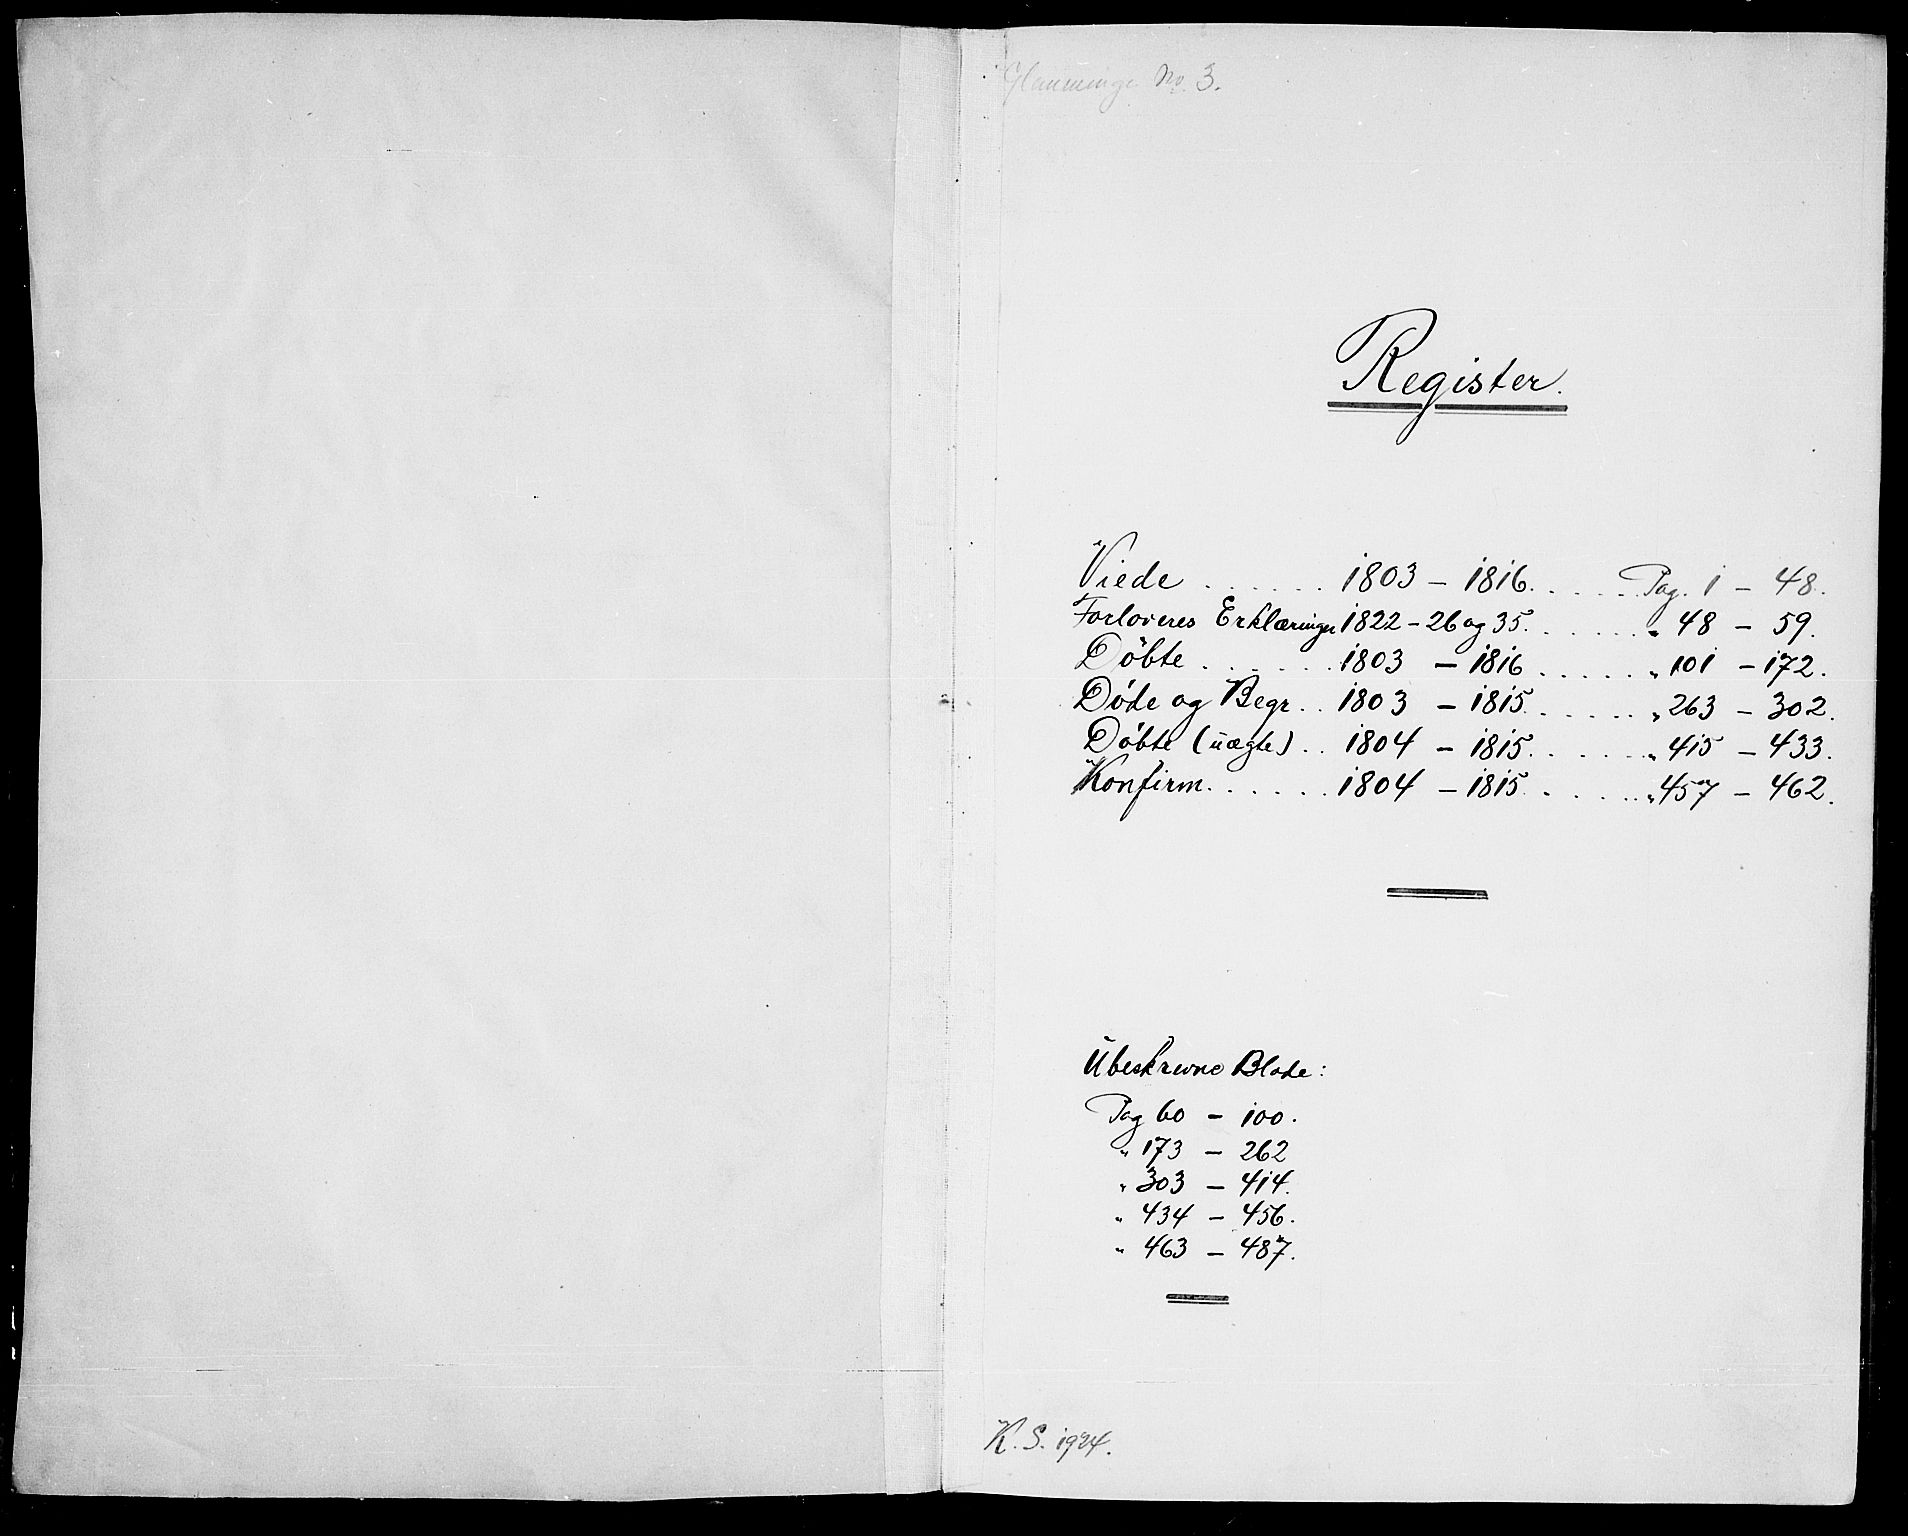 Glamminge No. 3.
Register.
Viede ...... 1803 – 1816. .... Pag. 1 – 48.
Forloveres Erklæringer 1822 – 26 og 35. ..... „ 48 – 59.
Döbte ...... 1803 – 1816 ..... „ 101 – 172.
Döde og Begr. .. 1803 – 1815. ..... „ 263 – 302.
Döbte (uægte) .. 1804 – 1815. ..... „ 415 – 433.
Konfirm. ..... 1804 – 1815. ..... „ 457 – 462.
Ubeskrevne Blade:
Pag 60 – 100.
„ 173 – 262
„ 303 – 414.
„ 434 – 456.
„ 463 – 487.
K. S. 1924.